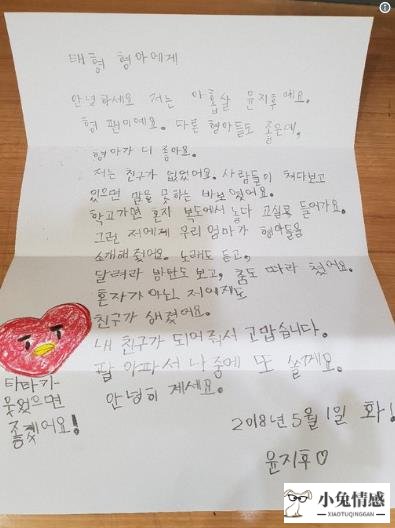 태형 형아에게
안녕하세요 저는 아홉살 윤지후예요.
형 팬이예요. 다른 형아들도 좋은데,
형아가 더 좋아요.
저는 친구가 없었어요. 사람들이 쳐다보고
있으면 말을 못하는 바보였어요.
학교가면 혼자 복도에서 놀다 교실로 들어가요.
그런 저에게 우리엄마가 형아들을
소개해줬어요. 노래도 듣고,
달려라 방탄도 보고, 춤도 따라 췄어요.
혼자가 아닌 저에게도
친구가 생겼어요.
내 친구가 되어줘서 고맙습니다.
팔 아파서 나중에 또 쓸께요.
안녕히 계세요.
타타가
웃었으면
좋겠어요!
2018년 5월 1일 화!
윤지후♡
小兔情感
XIAOTUQINGGAN